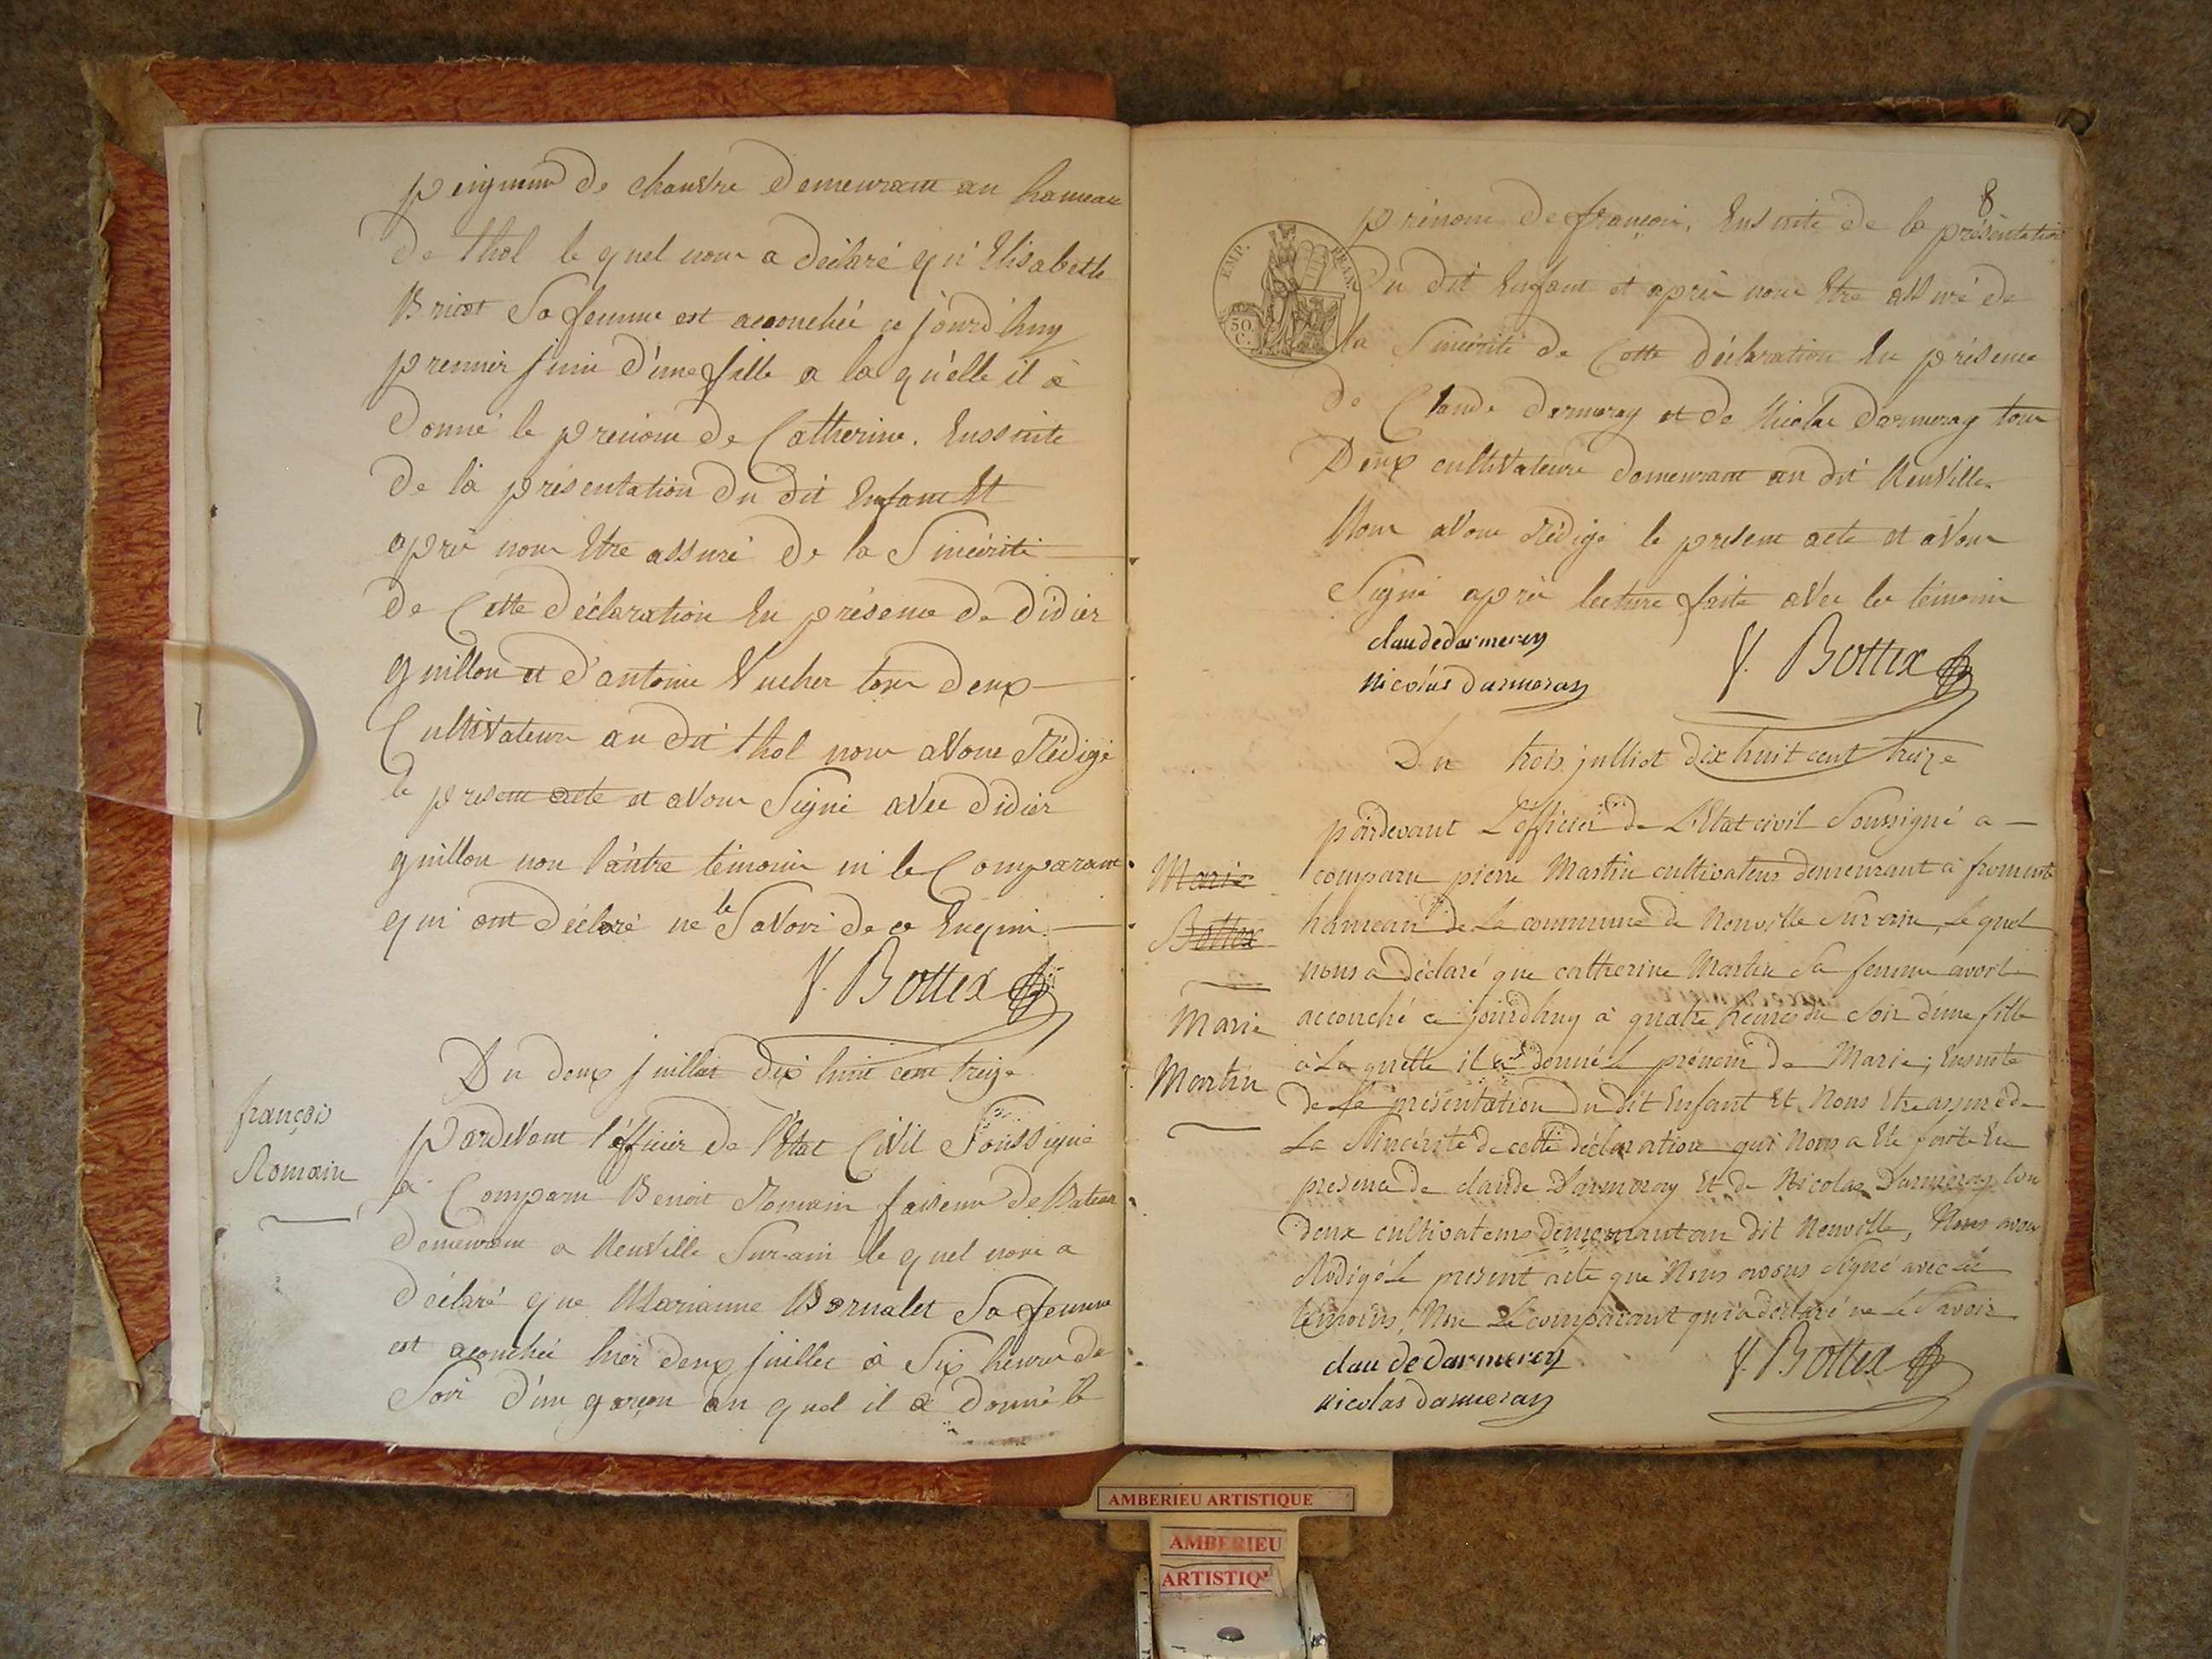 peigneur de chanvre demeurant au hameau
de thol le quel nous a déclaré qu'Elisabeth
Bricot Sa femme est accouchée ce jourd'huy
premier juin d'une fille a la qu'elle il à
donné le prenom de Catherine. Enssuite
de la présentation du dit Enfant Et
après nous Etre assuré de la Sincérité
de Cette déclaration En présence de didier
guillon et d'antoine Vucher tous deux
Cultivateurs au dit thol nous avons Rédigé
le present acte et avons Signé avec didier
guillon non l'autre témoin ni le Comparant
qui ont déclaré ne le Savoir de ce Enquis.
J. Bottex
françois
Romain
Du deux juillet dix huit cent treize
pardevant l'officier de l'Etat Civil Soussigné
a Comparu Benoit Romain faiseur de Bateau
demeurant a Neuville Sur-ain le quel nous a
déclaré que Marianne Bornalet Sa femme
est acouchée hier deux juillet à Six heures du
Soir d'un garçon au quel il a donné le
8
EMP. FRAN.
50
C.
prénom de françois. Ensuite de la présentation
Du dit Enfant et après nous Etre assuré de
la Sincérité de Cette déclaration En présence
de Claude darmeray et de Nicolas darmeray tous
Deux cultivateurs demeurant au dit Neuville.
Nous avons Rédigé le present acte et avons
Signé après lecture faite avec les témoins
claude darmerey
nicolas darmeray
J. Bottex
Du trois julliet dix huit cent treize
Marie
Bottex
Marie
Martin
pardevant L'officier de L'Etat civil Soussigné a
comparu pierre Martin cultivateur demeurant à froment
hameau de La commune de Neuville Sur ain, Le quel
nous a déclaré que catherine Martin Sa femme avoit
accouché ce jourd'huy à quatre heures du Soir d'une fille
à La quelle il a donné Le prénom de Marie; Ensuite
de La présentation du dit Enfant Et Nous Etre assuré de
La Sincérité de cette déclaration qui Nous a Eté faite En
presence de claude Darmeray Et de Nicolas Darmeray tous
deux cultivateurs demeurant au dit Neuville, Nous avons
Rédigé Le present acte que Nous avons Signé avec Les
témoins, Non Le comparant qui a déclaré ne Le Savoir
claude darmerey
nicolas darmeray
J. Bottex
AMBERIEU ARTISTIQUE
AMBERIEU
ARTISTIQ